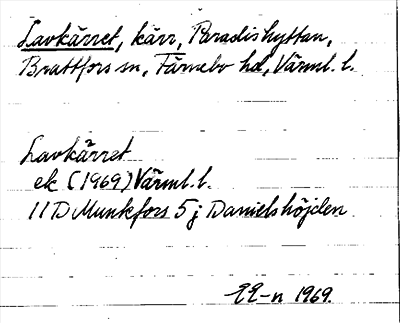 Lavkärret, kärr, Paradishyttan,
Brattfors sn, Färnebo hd, Värml. l.
Lavkärret
ek (1969) Värml. l.
11D Munkfors 5j Danielshöjden
EE-n 1969.